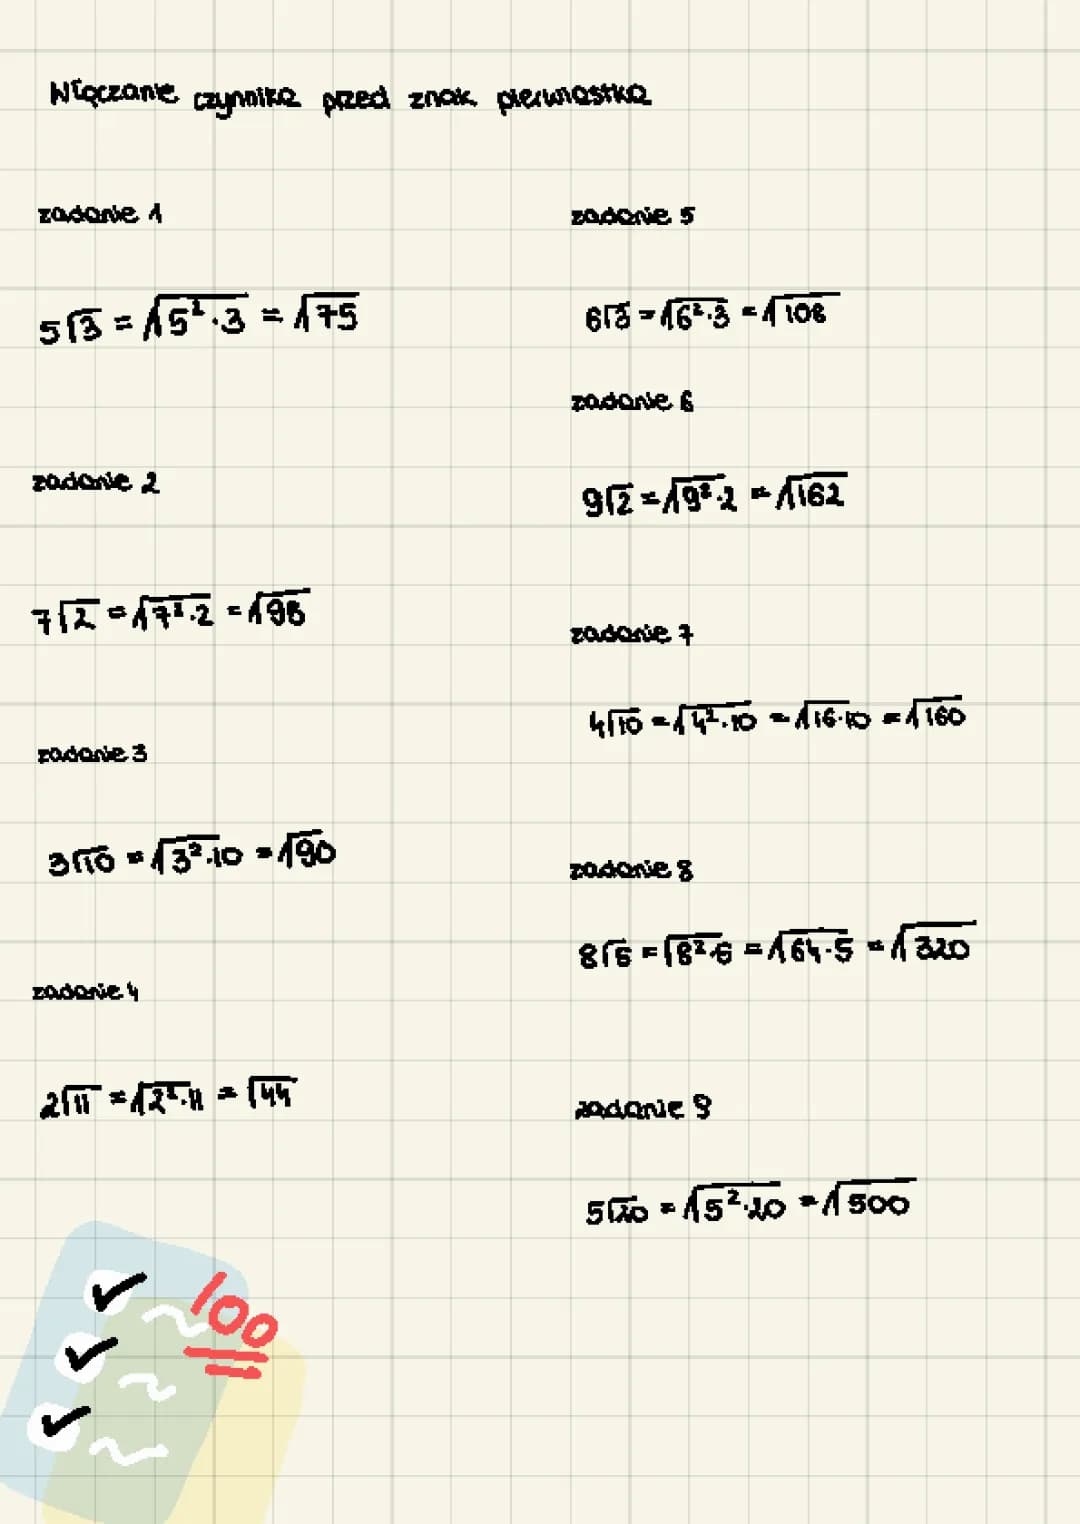 Włączanie czynnika przed znak pierwiastka
zadanie 1
5√3 = √5²·3 = √75
zadanie 2
7√2 = √7²·2 = √98
zadanie 3
3√10 = √3²·10 = √90
zadanie 4
2√11 = √2²·11 = √44
zadanie 5
6√3 = √6²·3 = √108
zadanie 6
9√2 = √9²·2 = √162
zadanie 7
4√10 = √4²·10 = √16·10 = √160
zadanie 8
8√5 = √8²·5 = √64·5 = √320
zadanie 9
5√20 = √5²·20 = √500
100